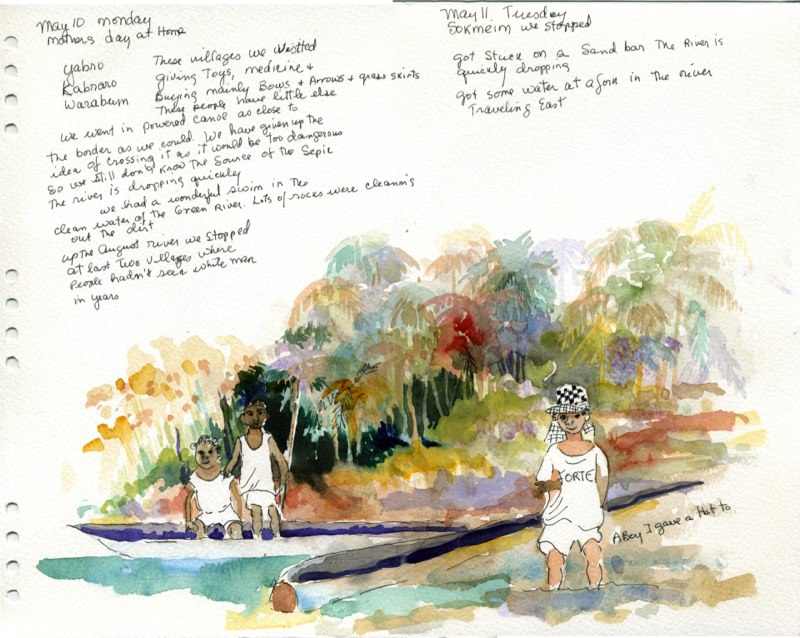 May 10 monday
mothers day at Home
Yabro
Kabraro
Warabum
These villages we visited
giving Toys, medicine +
Buying mainly Bows + Arrows + grass skirts
These people have little else
we went in powered canoe as close to
the border as we could. We have given up the
idea of crossing it as it would be too dangerous
So we still don't know the Source of the Sepic
The river is dropping quickly
we had a wonderful swim in the
clean water of the Green River. Lots of rocks were cleaning
out the dirt
up the August river we stopped
at last two villages where
people hadn't seen white man
in years
May 11. Tuesday
Sokmeim we stopped
got Stuck on a Sand bar The River is
quickly dropping
got some water at a fork in the river
Traveling East
FORTE
A Boy I gave a Hat to